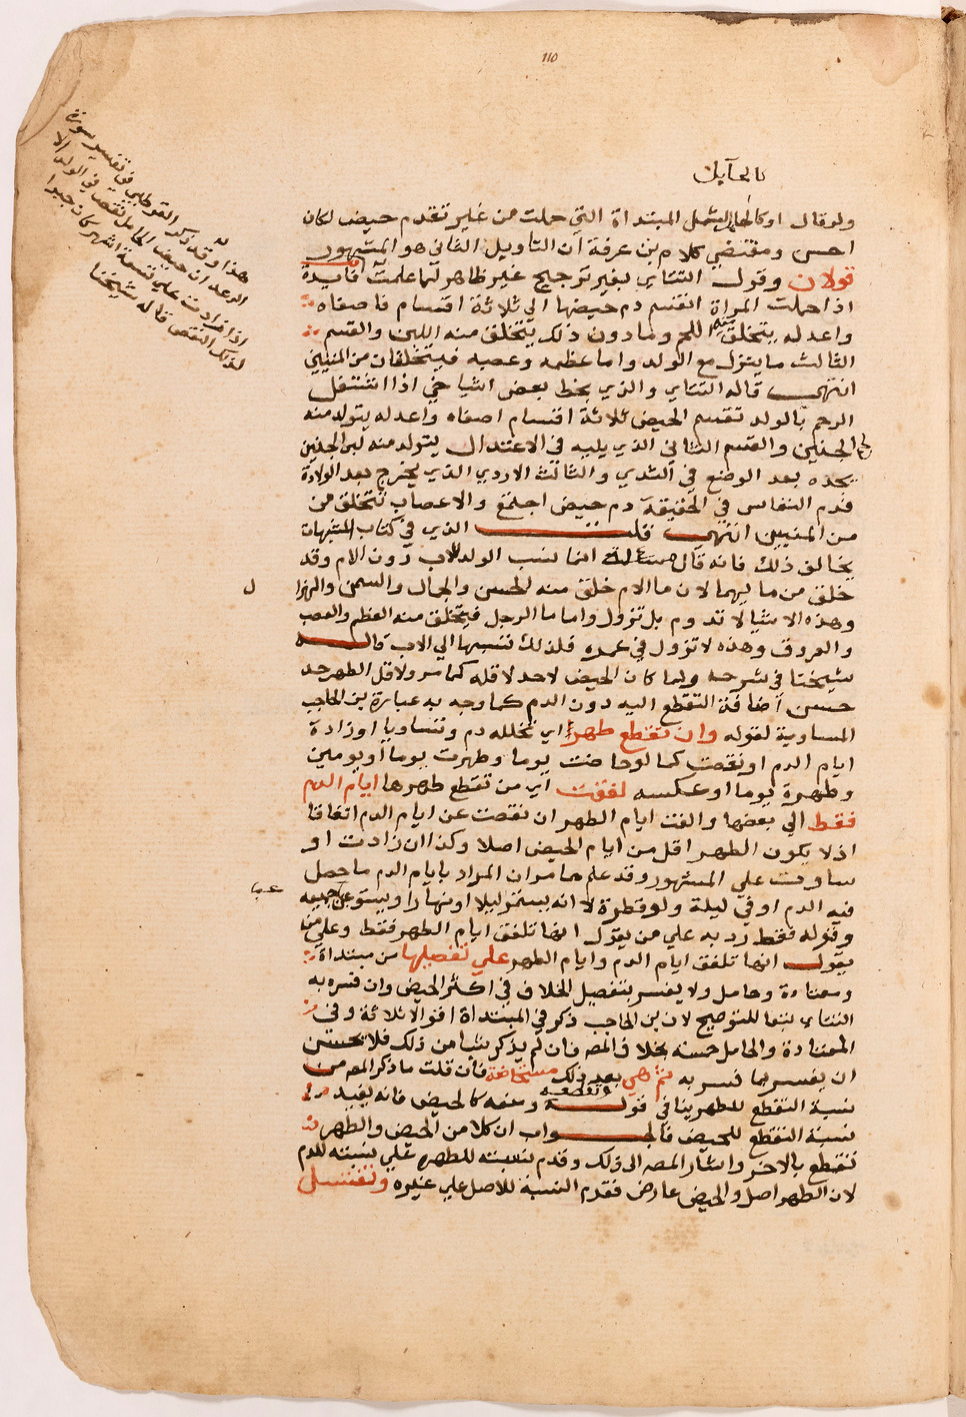 110
كالحايل
ولو قال او كالحايل ليشمل المبتداة التي حملت من غير تقدم حيض لكان
احسن ومقتضي كلام بن عرفة ان التاويل الثاني هو المشهور
قولان وقول التتاي بغير ترجيح غير ظاهر لما علمت فايدة
اذا حملت المراة انقسم دم حيضها الي ثلاثة اقسام فاصفاه
واعدله يتخلق منه اللحم وما دون ذلك يتخلق منه اللبن والقسم
الثالث ما ينزل مع الولد واما عظمه وعصبه فيتخلقان من المنيين
انتهى قاله التتاي والذي بخط بعض اشياخي اذا اشتغل
الرحم بالولد تقسم الحيض ثلاثة اقسام اصفاه واعدله يتولد منه
لحم الجنين والقسم الثاني الذي يليه في الاعتدال يتولد منه لبن الجنين
يجده بعد الوضع في الثدي والثالث الاردي الذي يخرج بعد الولادة
فدم النفاس في الحقيقة دم حيض اجتمع والاعصاب تتخلق من
من المنيين انتهى قلت الذي في كتاب المتشبهات
يخالف ذلك فانه قال مسئالة انما نسب الولد للاب دون الام وقد
خلق من ماييهما لان ما الام خلق منه الحسن والجمال والسمن والهزال
وهذه الاشيا لا تدوم بل تزول واما ما الرجل فيتخلق منه العظم والعصب
والعروق وهذه لا تزول في عمره فلذلك ننسبها الي الاب قاله
شيخنا في شرحه ولما كان الحيض لا حد لاقله كما مر ولاقل الطهر حد
حسن اضافة التقطع اليه دون الدم كما وجه به عبارة بن الحاجب
المساوية لقوله وان تقطع طهر اي تخلله دم وتساويا او زادة
ايام الدم او نقصت كما لو حاضت يوما وطهرت يوما او يومين
وطهرة يوما او عكسه لفقت اي من تقطع طهرها ايام الدم
فقط الي بعضها والغت ايام الطهر ان نقصت عن ايام الدم اتفاقا
اذ لا يكون الطهر اقل من ايام الحيض اصلا وكذا ان زادت او
ساوت علي المشهور وقد علم مما مر ان المراد بايام الدم ما حصل
فيه الدم او في ليلة ولو قطرة لا انه يستمر ليلا او نهارا ويستوعب جميعه
وقوله فقط رد به علي من يقول انها تلفق ايام الطهر فقط وعلي من
يقول انها تلفق ايام الدم وايام الطهر علي تفصيلها من مبتداة
ومعتادة وحامل ولا يفسر بتفصيل الخلاف في اكثر الحيض وان فسره به
التتاي تبعا للتوضيح لان بن الحاجب ذكر في المبتداة اقوالا ثلاثة وفي
المعتادة والحامل خمسة بخلاف المصه فان لم يذكر شيا من ذلك فلا يحسن
ان يفسر بما فسر به ثم هي بعد ذلك مستحاضة فان قلت ما ذكر المصه من
نسبة التقطع للطهر ينافي قوله وتقطعه ومنعه كالحيض فانه يفيد
نسبة التقطع للحيض فالجواب ان كلا من الحيض والطهر
تقطع بالاخر واشار المصه الي ذلك وقدم نسبته للطهر علي نسبته للدم
لان الطهر اصل والحيض عارض فقدم النسبة للاصل علي غيره وتغتسل
هذا وقد ذكر القرطبي في تفسير سورة
الرعد ان حيض الحامل نقص في الولد الا
اذا زادت علي تسعة اشهر كان جبرا
لذلك النقص قاله شيخنا